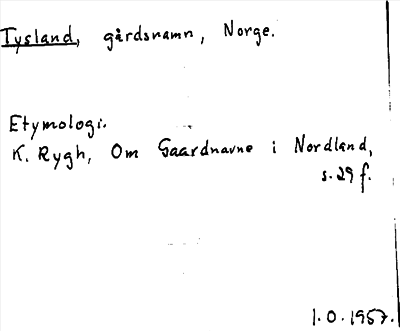 Tysland, gårdsnamn, Norge.
Etymologi.
K. Rygh, Om Gaardnavne i Nordland,
s. 29 f.
1.0.1957.